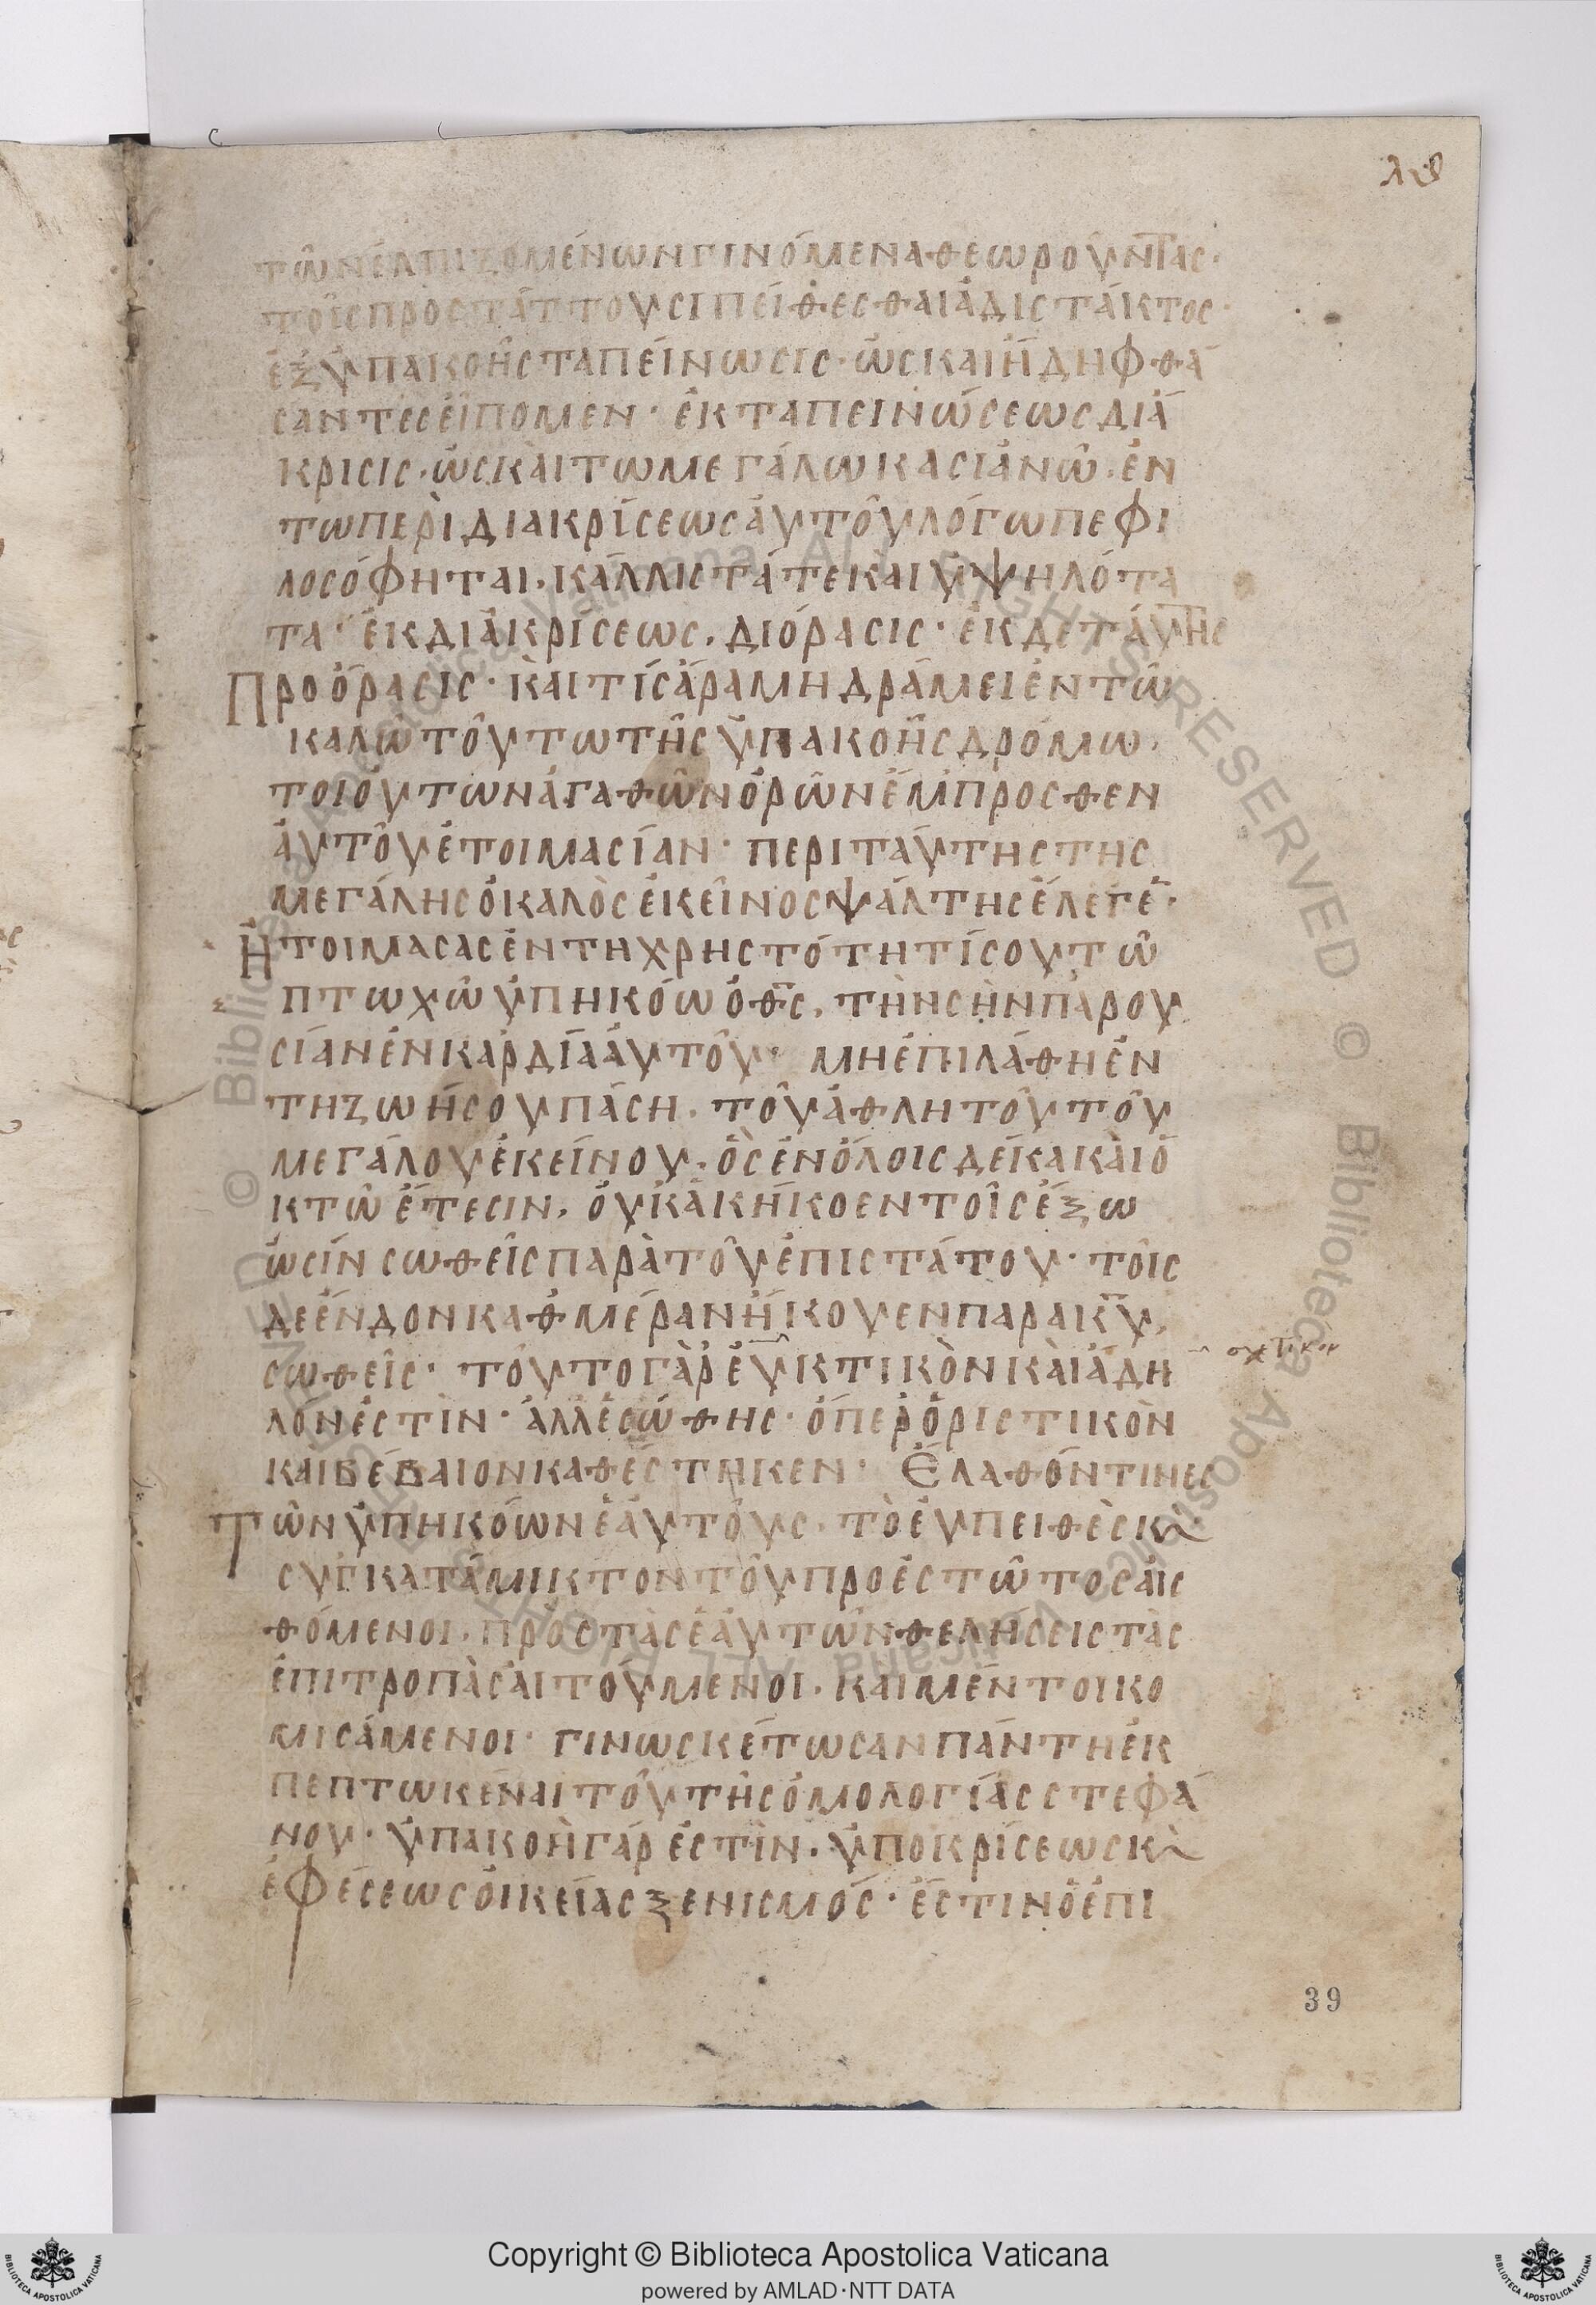 λθ
τῶν ἐλπιζομένων γινόμενα θεωροῦντας·
τοῖς προστάττουσι πείθεσθαι ἀδιστάκτος·
ἐξ ὑπακοῆς ταπείνωσις· ὡς καὶ ἤδη φθά
σαντες εἴπομεν· ἐκ ταπεινώσεως διά
κρισις· ὡς καὶ τω μεγάλω κασιανῶ· ἐν
τω περὶ διακρίσεως ἀυτοῦ λόγω πεφι
λοσόφηται· κάλλιστά τε καὶ ὑψηλότα
τα· ἐκ διἀκρίσεως, διόρασις· ἐκ δε τάυτης
Προόρασις· καὶ τίς ἄρα μη δράμει ἐν τῶ
καλῶ τούτω τῆς ὑπακοῆς δρόμω·
τοιούτων ἀγαθῶν ὁρῶν ἔμπροσθεν
ἀυτοῦ ἑτοιμασίαν· περι ταύτης της
μεγάλης ὁ καλὸς ἐκεῖνος ψάλτης ἔλεγε·
Ἡτοίμασας ἐν τη χρηστότητί σου τῶ
πτωχῶ ὑπηκόω ὁ θς, τὴν σὴν παρου
σίαν ἐν καρδία ἀυτοῦ· μη ἐπιλάθη ἐν
τη ζωή σου πάση· τοῦ ἀθλητοῦ τοῦ
μεγάλου ἐκείνου· ὃς ἐν ὅλοις δέκα καὶ ὀ
κτῶ ἔτεσιν, ὀυκ ἀκήκοεν τοῖς ἔξω
ὠσίν σωθεῖς παρὰ τοῦ ἐπιστάτου· τοῖς
δε ἔνδον καθ μέραν ἤκουεν παρα κυ,
σωθεῖς· τοῦτο γὰρ ἐυκτικὸν καὶ ἄδη
σχετικον
λόν ἐστὶν· ἀλλ ἐσώθης· ὅπερ ὁριστικὸν
και βέβαιον καθέστηκεν· Ἔλαθόν τινες
Τῶν ὑπηκόων ἑαυτούς· τὸ ἐυπειθὲς κ̀
συγκατάμικτον τοῦ προεστῶτος ἀισ
θόμενοι· πρὸς τὰς ἑαυτῶν θελήσεις τὰς
ἐπιτροπὰς ἀιτούμενοι· και μέν τοι κο
μισάμενοι· γινωσκέτωσαν πάντη ἐκ
πεπτωκέναι τοῦ τῆς ὁμολογίας στεφά
νου· ὑπακοὴ γάρ ἐστὶν· ὑποκρίσεως κ̀
ἐφέσεως ὀικείας ξενισμός· ἔστιν ὃ ἐπι
39
© Biblioteca Apostolica Vaticana ALL RIGHTS RESERVED
Copyright © Biblioteca Apostolica Vaticana
powered by AMLAD·NTT DATA